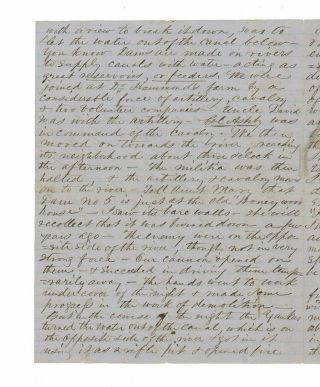 with a view to break it down, was to
let the water out of the canal below -
You know Dams are made on rivers
to supply canals with water - acting as
great reservoirs, or feeders. We were
joined at Dr Hammonds farm by a
considerable force of artillery, cavalry
& two volunteer companies - Uncle David
was with the artillery - Col. Ashby was
in command of the cavalry - We then
moved on towards the river reaching
its neighborhood about three oclock in
the afternoon - The militia was then
halted, & the artillery & cavalry mov
on to the river - Tell Aunt Mary that
Dam No 5 is just at the old "Honeywoo
house" - I saw its bare walls - she will
recollect that it was burned down a few
years ago - The enemy were on the oppo
-site side of the river, though not in very
strong force - Our cannon opened on
them - & succeeded in driving them tempo
-rarily away - the hands went to work
under cover of the night & made some
progress in the work of demolition -
But in the course of the night the Yankee
turned the water out of the canal, which is on
the opposite side of the river & got in it
using it as a rifle pit & opened fire